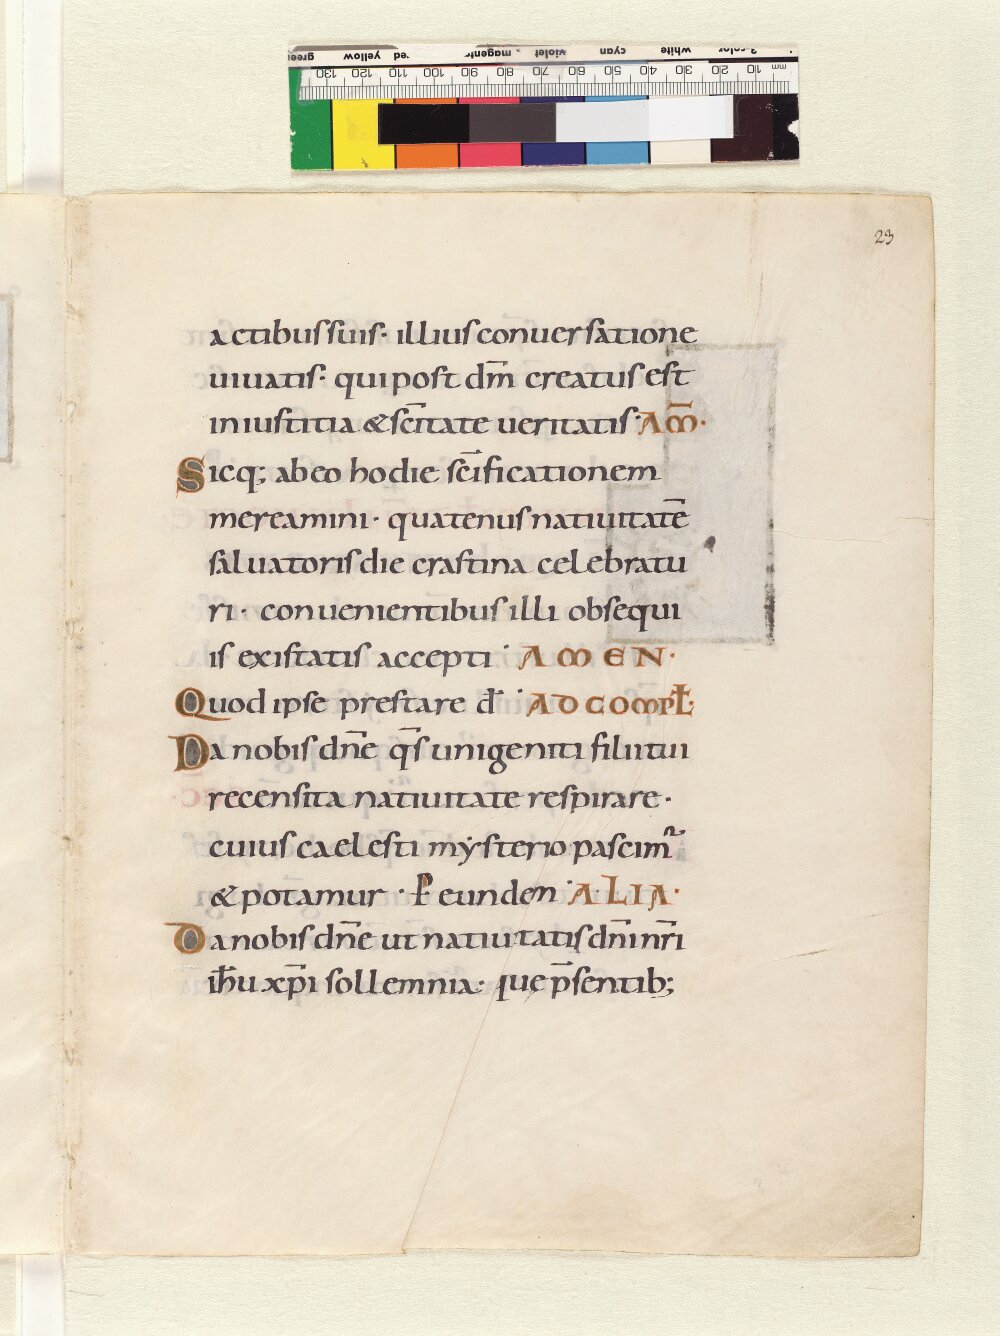 green yellow red magenta violet cyan white 3-color
130 120 110 100 90 80 70 60 50 40 30 20 10 mm
23
actibus suis · illius conuersatione
uiuatis · qui post dm̄ creatus est
in iustitia & sc̄itate ueritatis · AM̄ ·
Sicq; ab eo hodie sc̄ificationem
mereamini · quatenus natiuitatē
saluatoris die crastina celebratu
ri · conuenientibus illi obsequi
is existatis accepti · AMEN ·
Quod ipse prestare d̄ · AD COMPL̄ ·
Da nobis dn̄e q̄s unigeniti filii tui
recensita natiuitate respirare ·
cuius caelesti mẏsterio pascimr̃
& potamur · P̱ eunden · ALIA ·
Da nobis dn̄e ut natiuitatis dn̄i nr̄i
ih̄u xp̄i sollemnia · que p̄sentib;